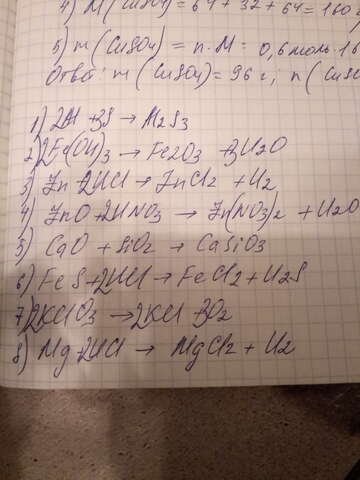 4) M(CuSO4) = 64 + 32 + 64 = 160
5) m(CuSO4) = n · M = 0,6моль · 16
Ответ: m(CuSO4) = 96 г; n(CuSO
1) 2Al + 3S → Al2S3
2) 2Fe(OH)3 → Fe2O3 + 3H2O
3) Zn + 2HCl → ZnCl2 + H2
4) ZnO + 2HNO3 → Zn(NO3)2 + H2O
5) CaO + SiO2 → CaSiO3
6) FeS + 2HCl → FeCl2 + H2S
7) 2KClO3 → 2KCl + 3O2
8) Mg + 2HCl → MgCl2 + H2